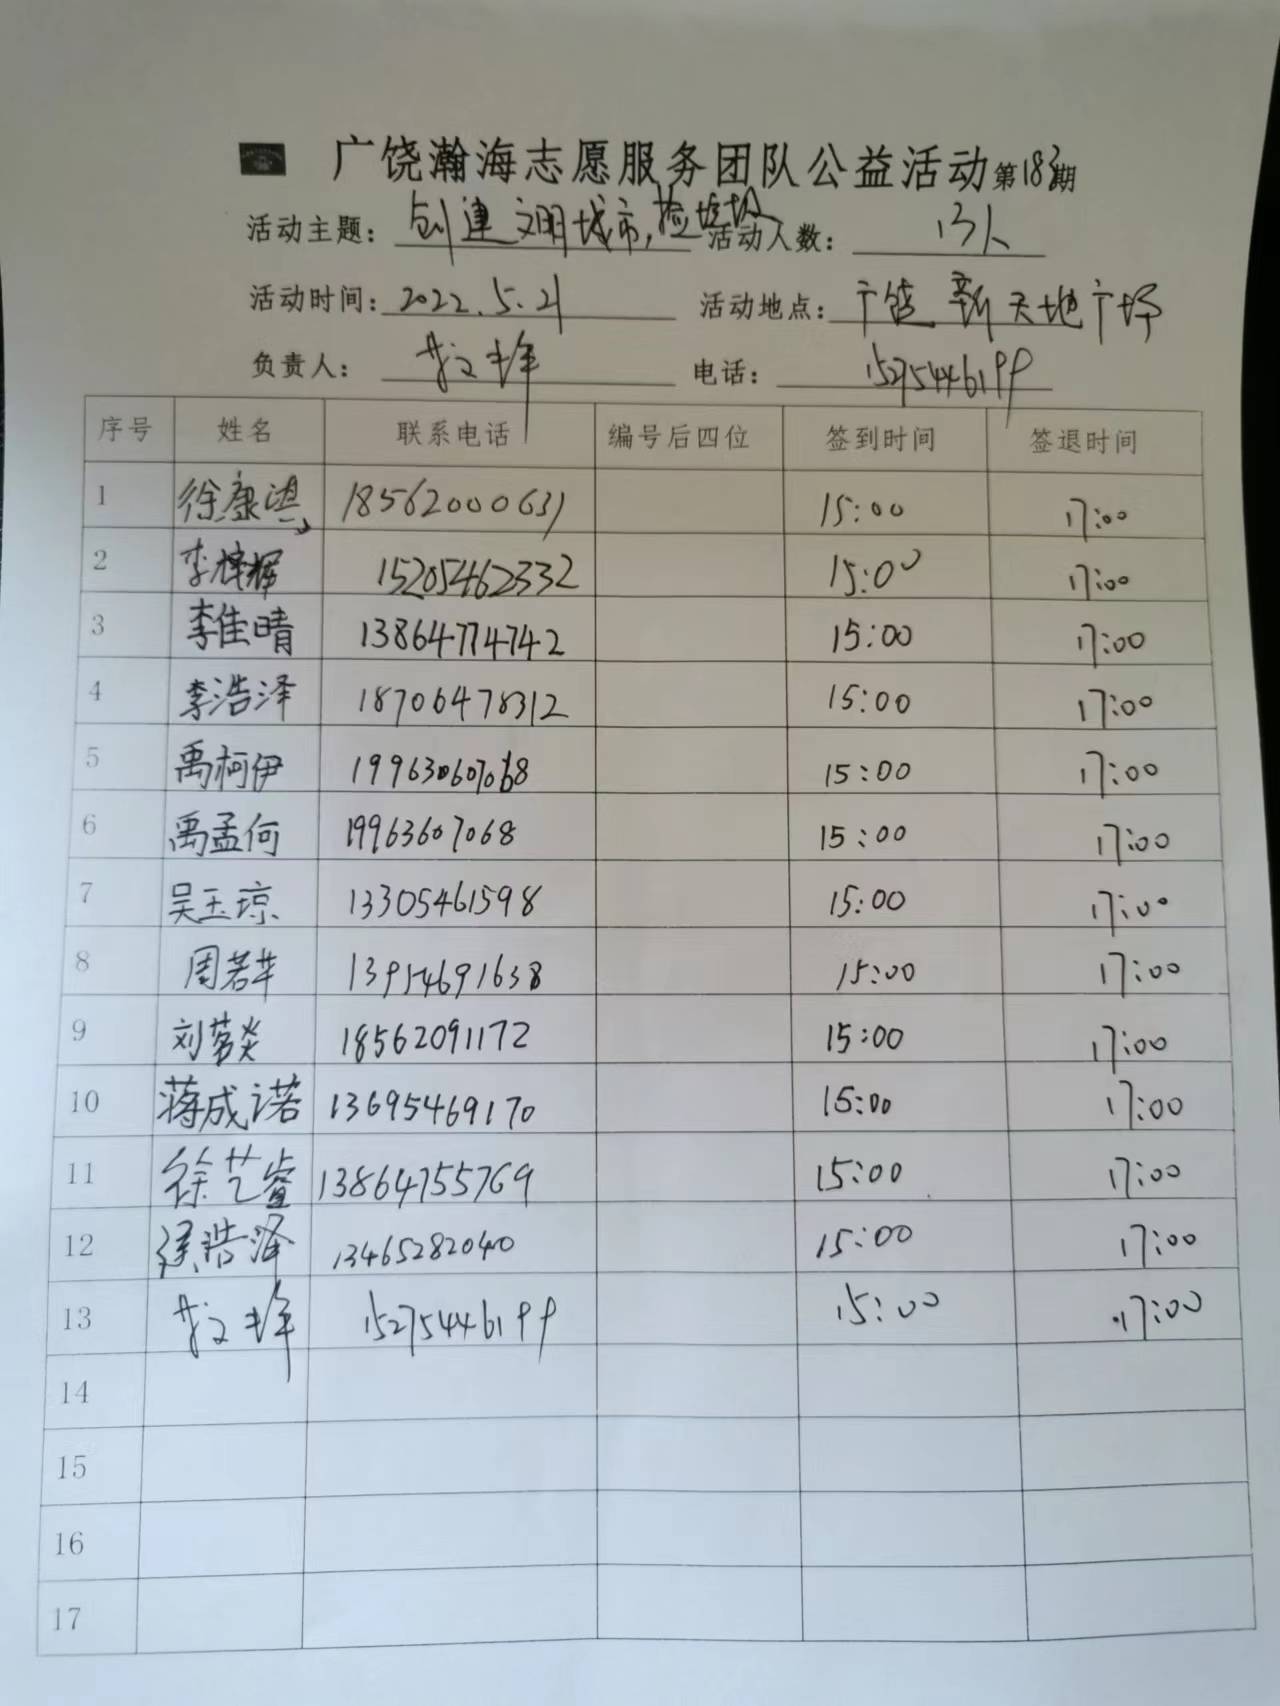 广饶瀚海志愿服务团队公益活动第183期
活动主题：创建文明城市，捡垃圾 活动人数：13人
活动时间：2022.5.21 活动地点：广饶新天地广场
负责人： 电话：15275446199
序号 姓名 联系电话 编号后四位 签到时间 签退时间
1 徐康 18562000631 15:00 17:00
2 李梓辉 15205462332 15:00 17:00
3 李佳晴 13864774742 15:00 17:00
4 李浩泽 18706478312 15:00 17:00
5 禹柯伊 15:00 17:00
6 禹孟何 19963607068 15:00 17:00
7 吴玉琼 13305461598 15:00 17:00
8 周若 13954691638 15:00 17:00
9 刘 18562091172 15:00 17:00
10 蒋成诺 13695469170 15:00 17:00
11 徐艺睿 13864755769 15:00 17:00
12 浩泽 13465282040 15:00 17:00
13 15275446199 15:00 17:00
14
15
16
17